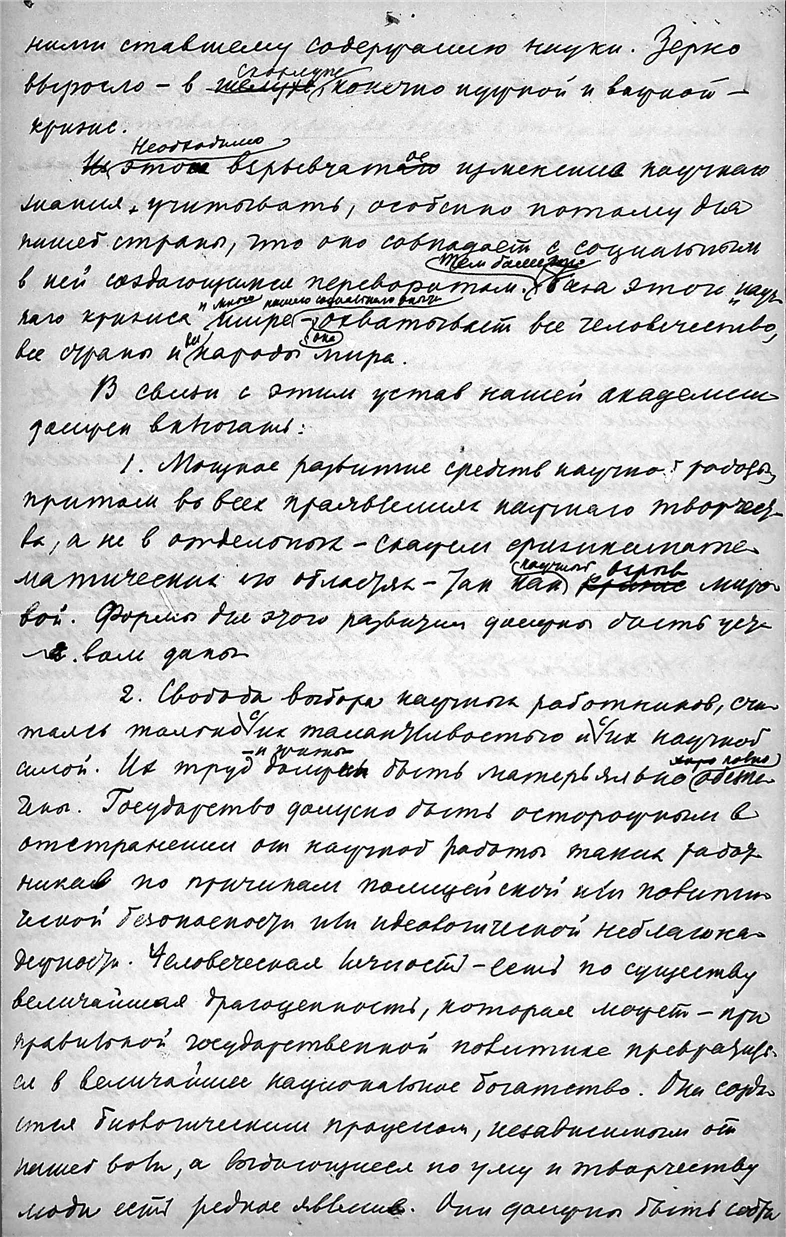 ними ставшему содержанию науки. Зерно
выросло – в скорлупе конечно нужной и важной –
кризис.
Необходимо
это взрывчатое изменение научного
знания учитывать, особенно потому для
нашей страны, что оно совпадает с социальным
в ней создающимся переворотом. Тем более, что
база этого "науч-
ного кризиса" шире нашего социального охватывает все человечество,
все страны и все народы мира.
В связи с этим устав нашей академии
должен включать:
1. Мощное развитие средств научной работы,
притом во всех проявлениях научного творчест-
ва, а не в отдельных – скажем физикомате-
матических его областях – так как научный взрыв миро-
вой. Формы для этого развития должны быть уста-
вом даны
2. Свобода выбора научных работников, счи-
таясь только с их талантливостью и с их научной
силой. Их труд и жизнь должны быть матерьяльно хорошо обеспе-
чены. Государство должно быть осторожным в
отстранении от научной работы таких работ-
ников по причинам полицейской или полити-
ческой безопасности или идеологической неблагона-
дежности. Человеческая личность – есть по существу
величайшая драгоценность, которая может – при
правильной государственной политике превратить-
ся в величайшее национальное богатство. Она созда-
ется биологическим процессом, независимым от
нашей воли, а выдающиеся по уму и творчеству
люди есть редкое явление. Они должны быть